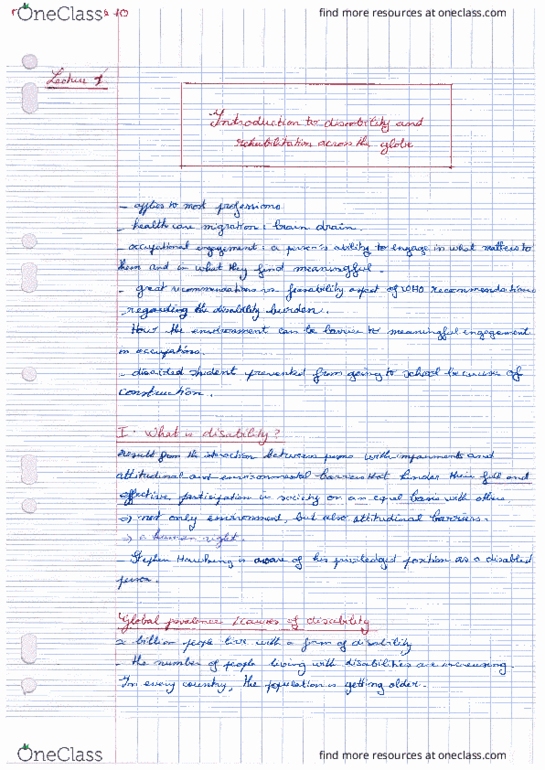 OneClass
find more resources at oneclass.com
10
Lecture 1
Introduction to disability and
rehabilitation across the globe
_ applies to most professions
_ health care migration : brain drain.
_ occupational engagement : a person's ability to engage in what matters to
them and in what they find meaningful.
_ great recommendations vs feasability aspect of WHO recommendations
regarding the disability burden.
How the environment can be barrier to meaningful engagement
in occupations.
_ disabled student prevented from going to school because of
construction.
I. What is disability?
result from the interaction between persons with impairments and
attitudinal and environmental barriers that hinder their full and
effective participation in society on an equal basis with others.
=> not only environment, but also attitudinal barriers.
=> a human right.
_ Stephen Hawking is aware of his priviledged position as a disabled
person.
Global prevalence / causes of disability
billion people live with a form of disability
_ the number of people living with disabilities are increasing.
In every country, the population is getting older.
OneClass
find more resources at oneclass.com